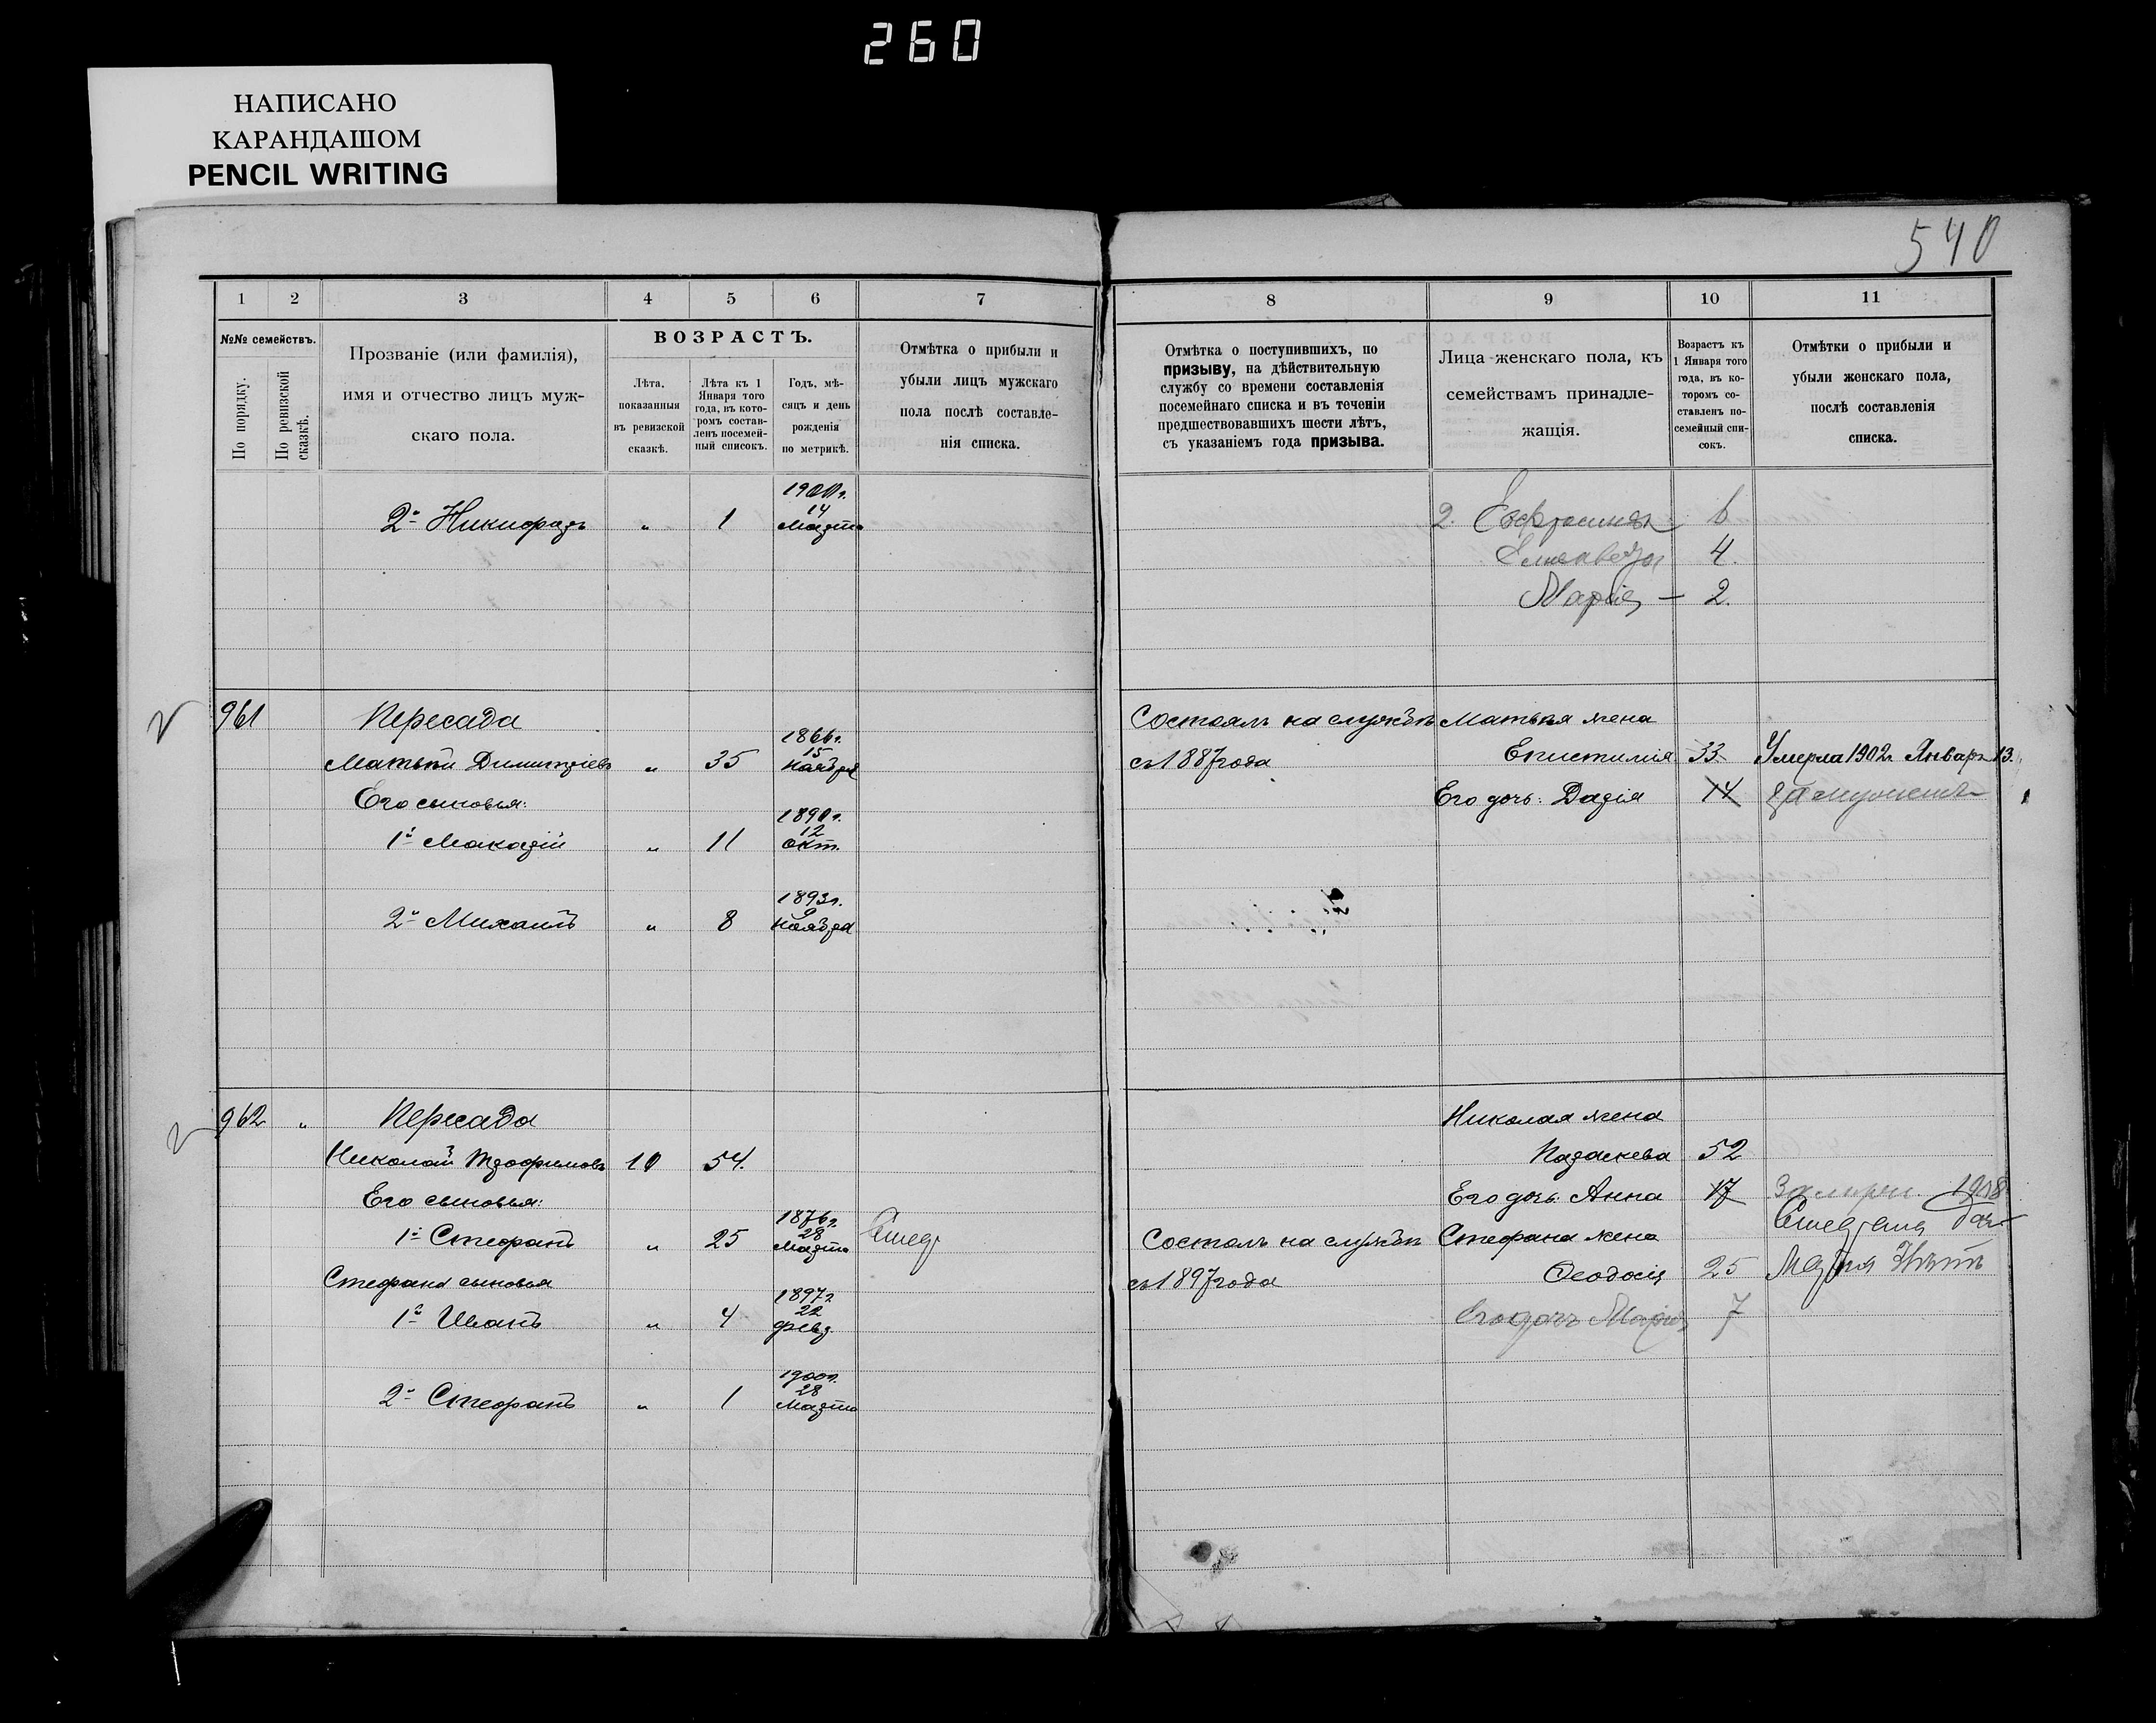 260
НАПИСАНО
КАРАНДАШОМ
PENCIL WRITING
540
1 2 3 4 5 6 7
№№ семействъ.
По порядку.
По ревизской сказкѣ.
Прозваніе (или фамилія),
имя и отчество лицъ муж-
скаго пола.
ВОЗРАСТЪ.
Лѣта,
показанныя
въ ревизской
сказкѣ.
Лѣта къ 1
Января того
года, въ кото-
ромъ состав-
ленъ посемей-
ный списокъ.
Годъ, мѣ-
сяцъ и день
рожденія
по метрикѣ.
Отмѣтка о прибыли и
убыли лицъ мужскаго
пола послѣ составле-
нія списка.
1900 г.
2й Никифоръ " 1 14
Марта
961 Пересада
1866 г.
Матвѣй Димитріевъ " 35 15
Ноября
Его сыновья:
1890 г.
1й Макарій " 11 12
окт.
1893 г.
2й Михаилъ " 8
Ноября
962 " Пересада
Николай Трофимовъ 10 54.
Его сыновья:
1876 г.
1й Стефанъ " 25 28
Марта
Стефана сыновья
1897 г.
1й Иванъ " 4 22
февр
1900 г.
2й Стефанъ " 1 28
Марта
8 9 10 11
Отмѣтка о поступившихъ, по
призыву, на дѣйствительную
службу со времени составленія
посемейнаго списка и въ теченіи
предшествовавшихъ шести лѣтъ,
съ указаніемъ года призыва.
Лица женскаго пола, къ
семействамъ принадле-
жащія.
Возрастъ къ
1 Января того
года, въ ко-
торомъ со-
ставленъ по-
семейный спи-
сокъ.
Отмѣтки о прибыли и
убыли женскаго пола,
послѣ составленія
списка.
2. Евфросинья 6
Елисавета 4.
Марія — 2.
Состоялъ на службѣ Матвѣя жена
съ 1887 года Епистимія 33 Умерла 1902 г. Январь 13.
Его дочь: Дарія 14 Замужемъ
Николая жена
Параскева 52
Его дочь: Анна 17 1918
Состоялъ на службѣ Стефана жена
съ 1897 года Ѳеодосія 25
Его дочь Марія 7